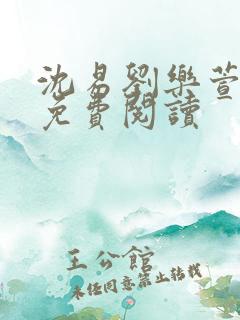 沈易劉樂萱
免費閱讀
王公館
未經同意禁止轉載